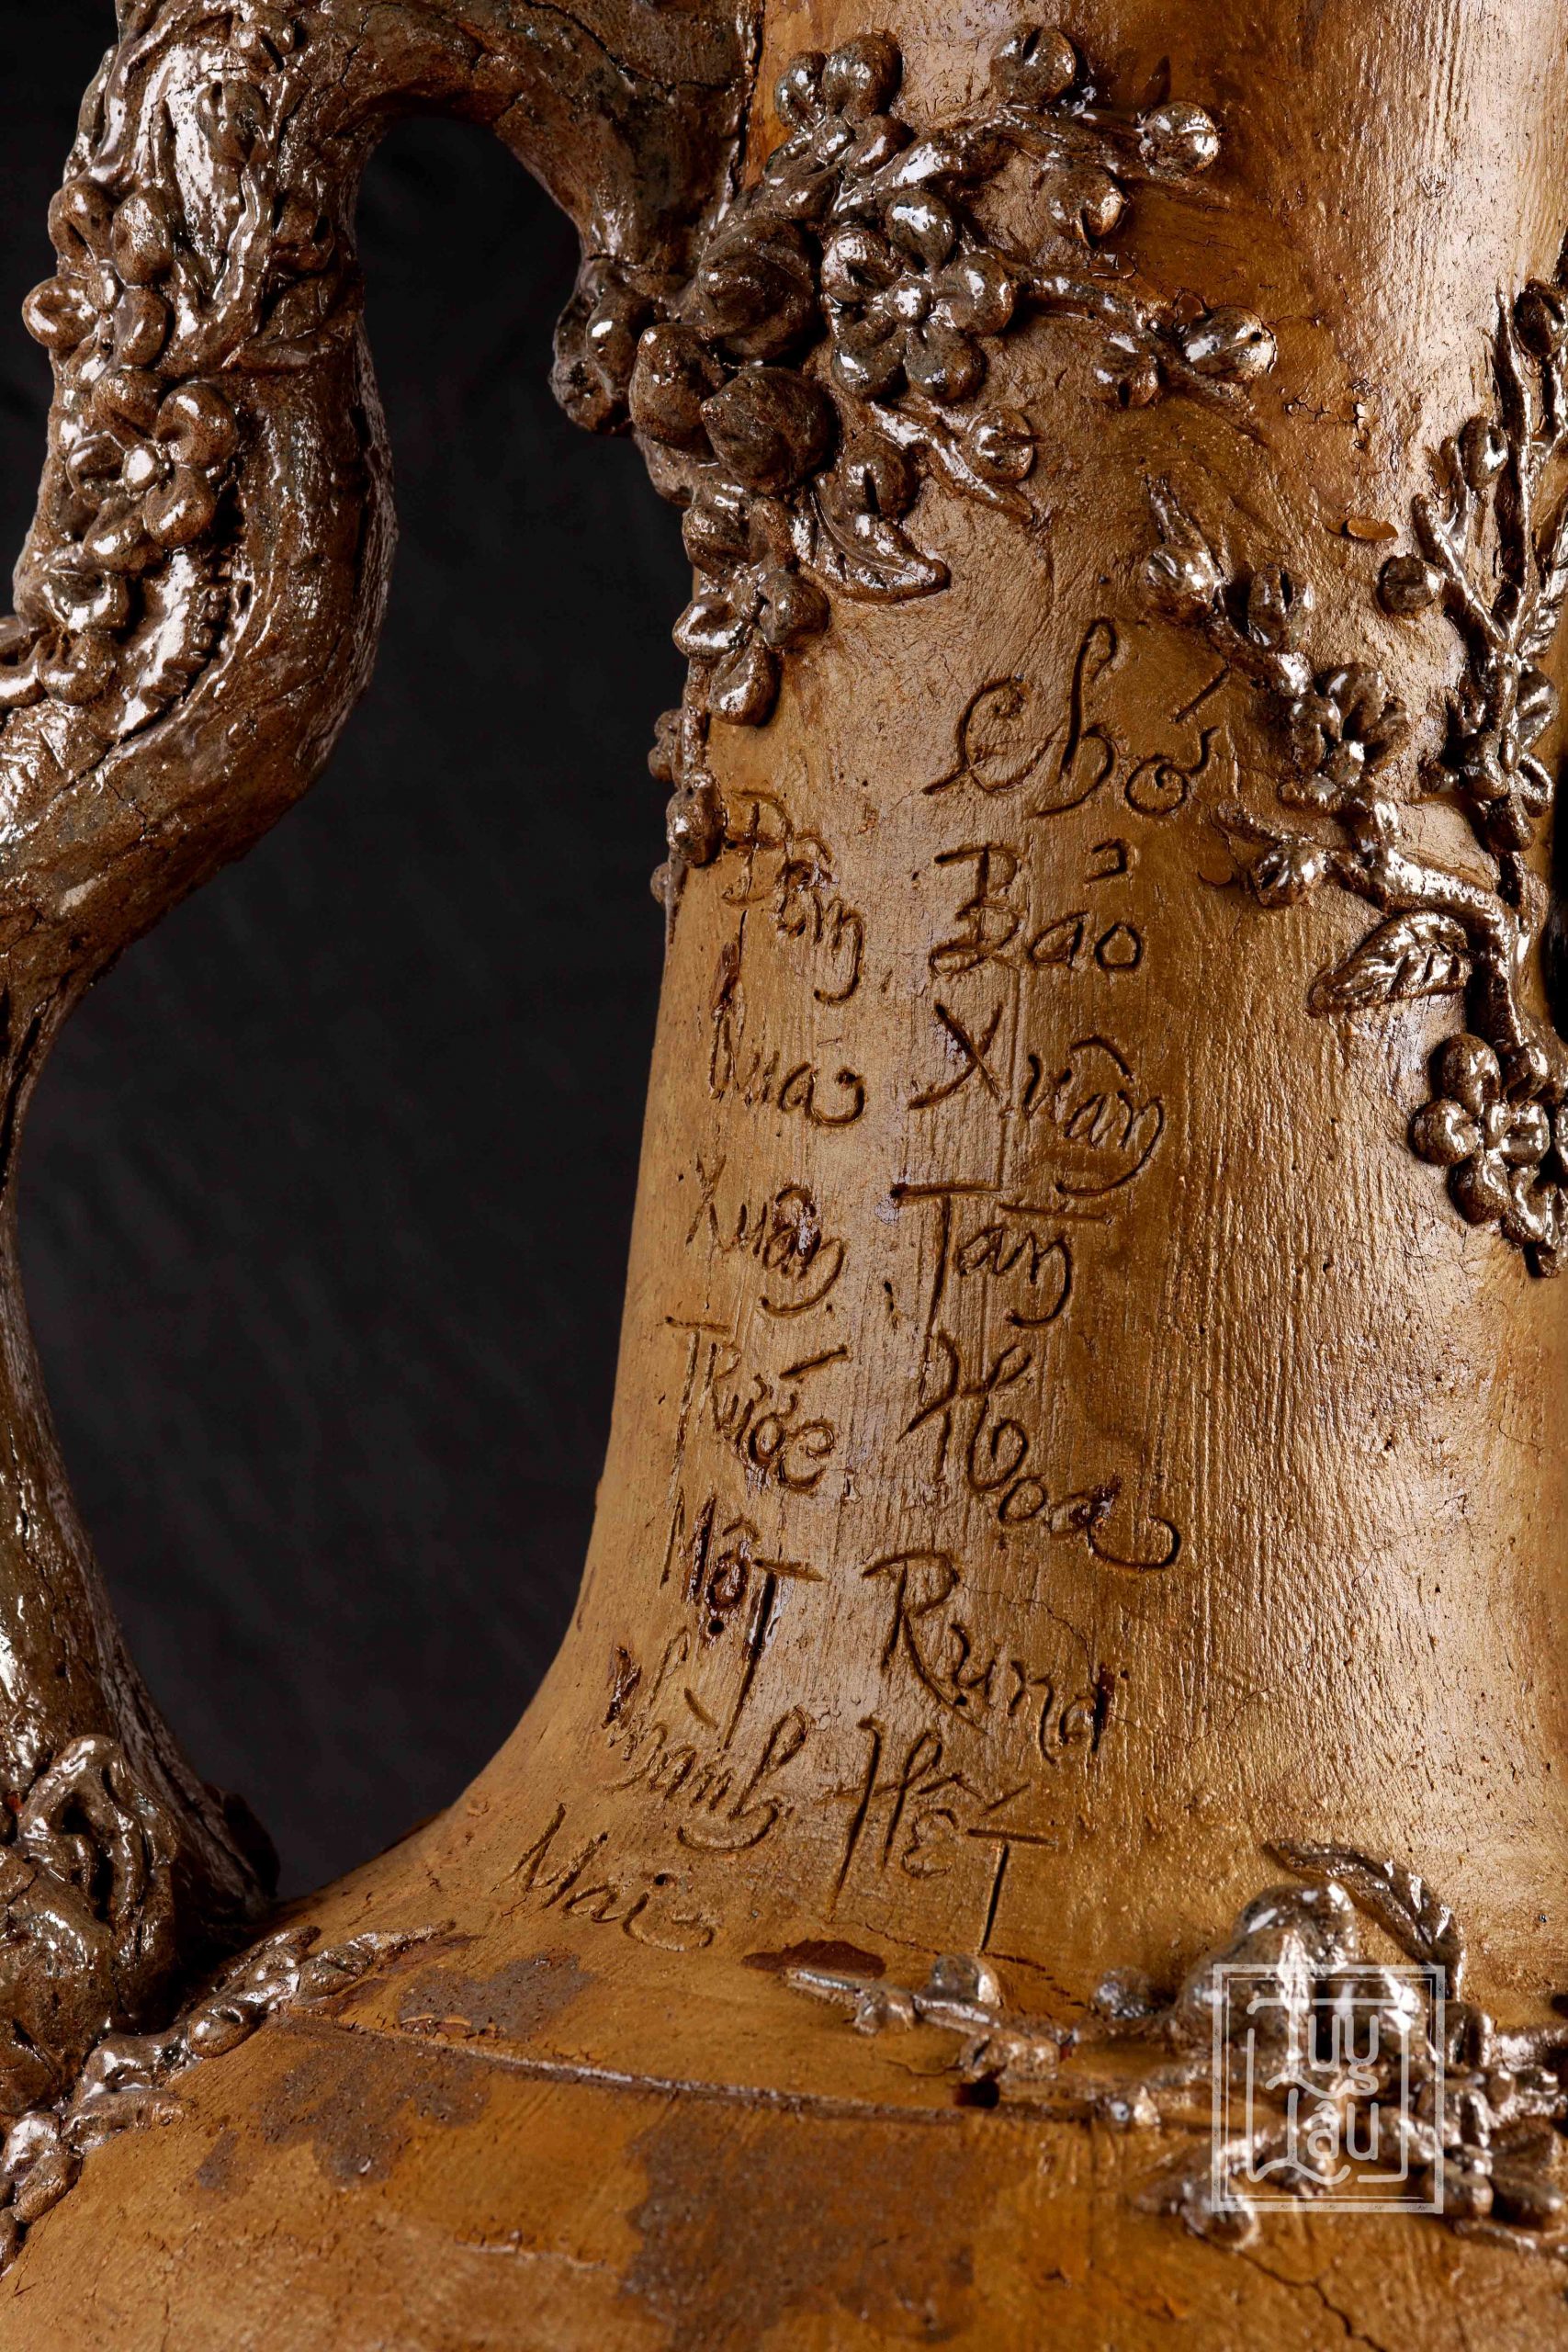 Chớ
Bảo
Xuân
Tàn
Hoa
Rụng
Hết
Đêm
Qua
Xuân
Trước
Một
Nhành
Mai
Luy
Lâu